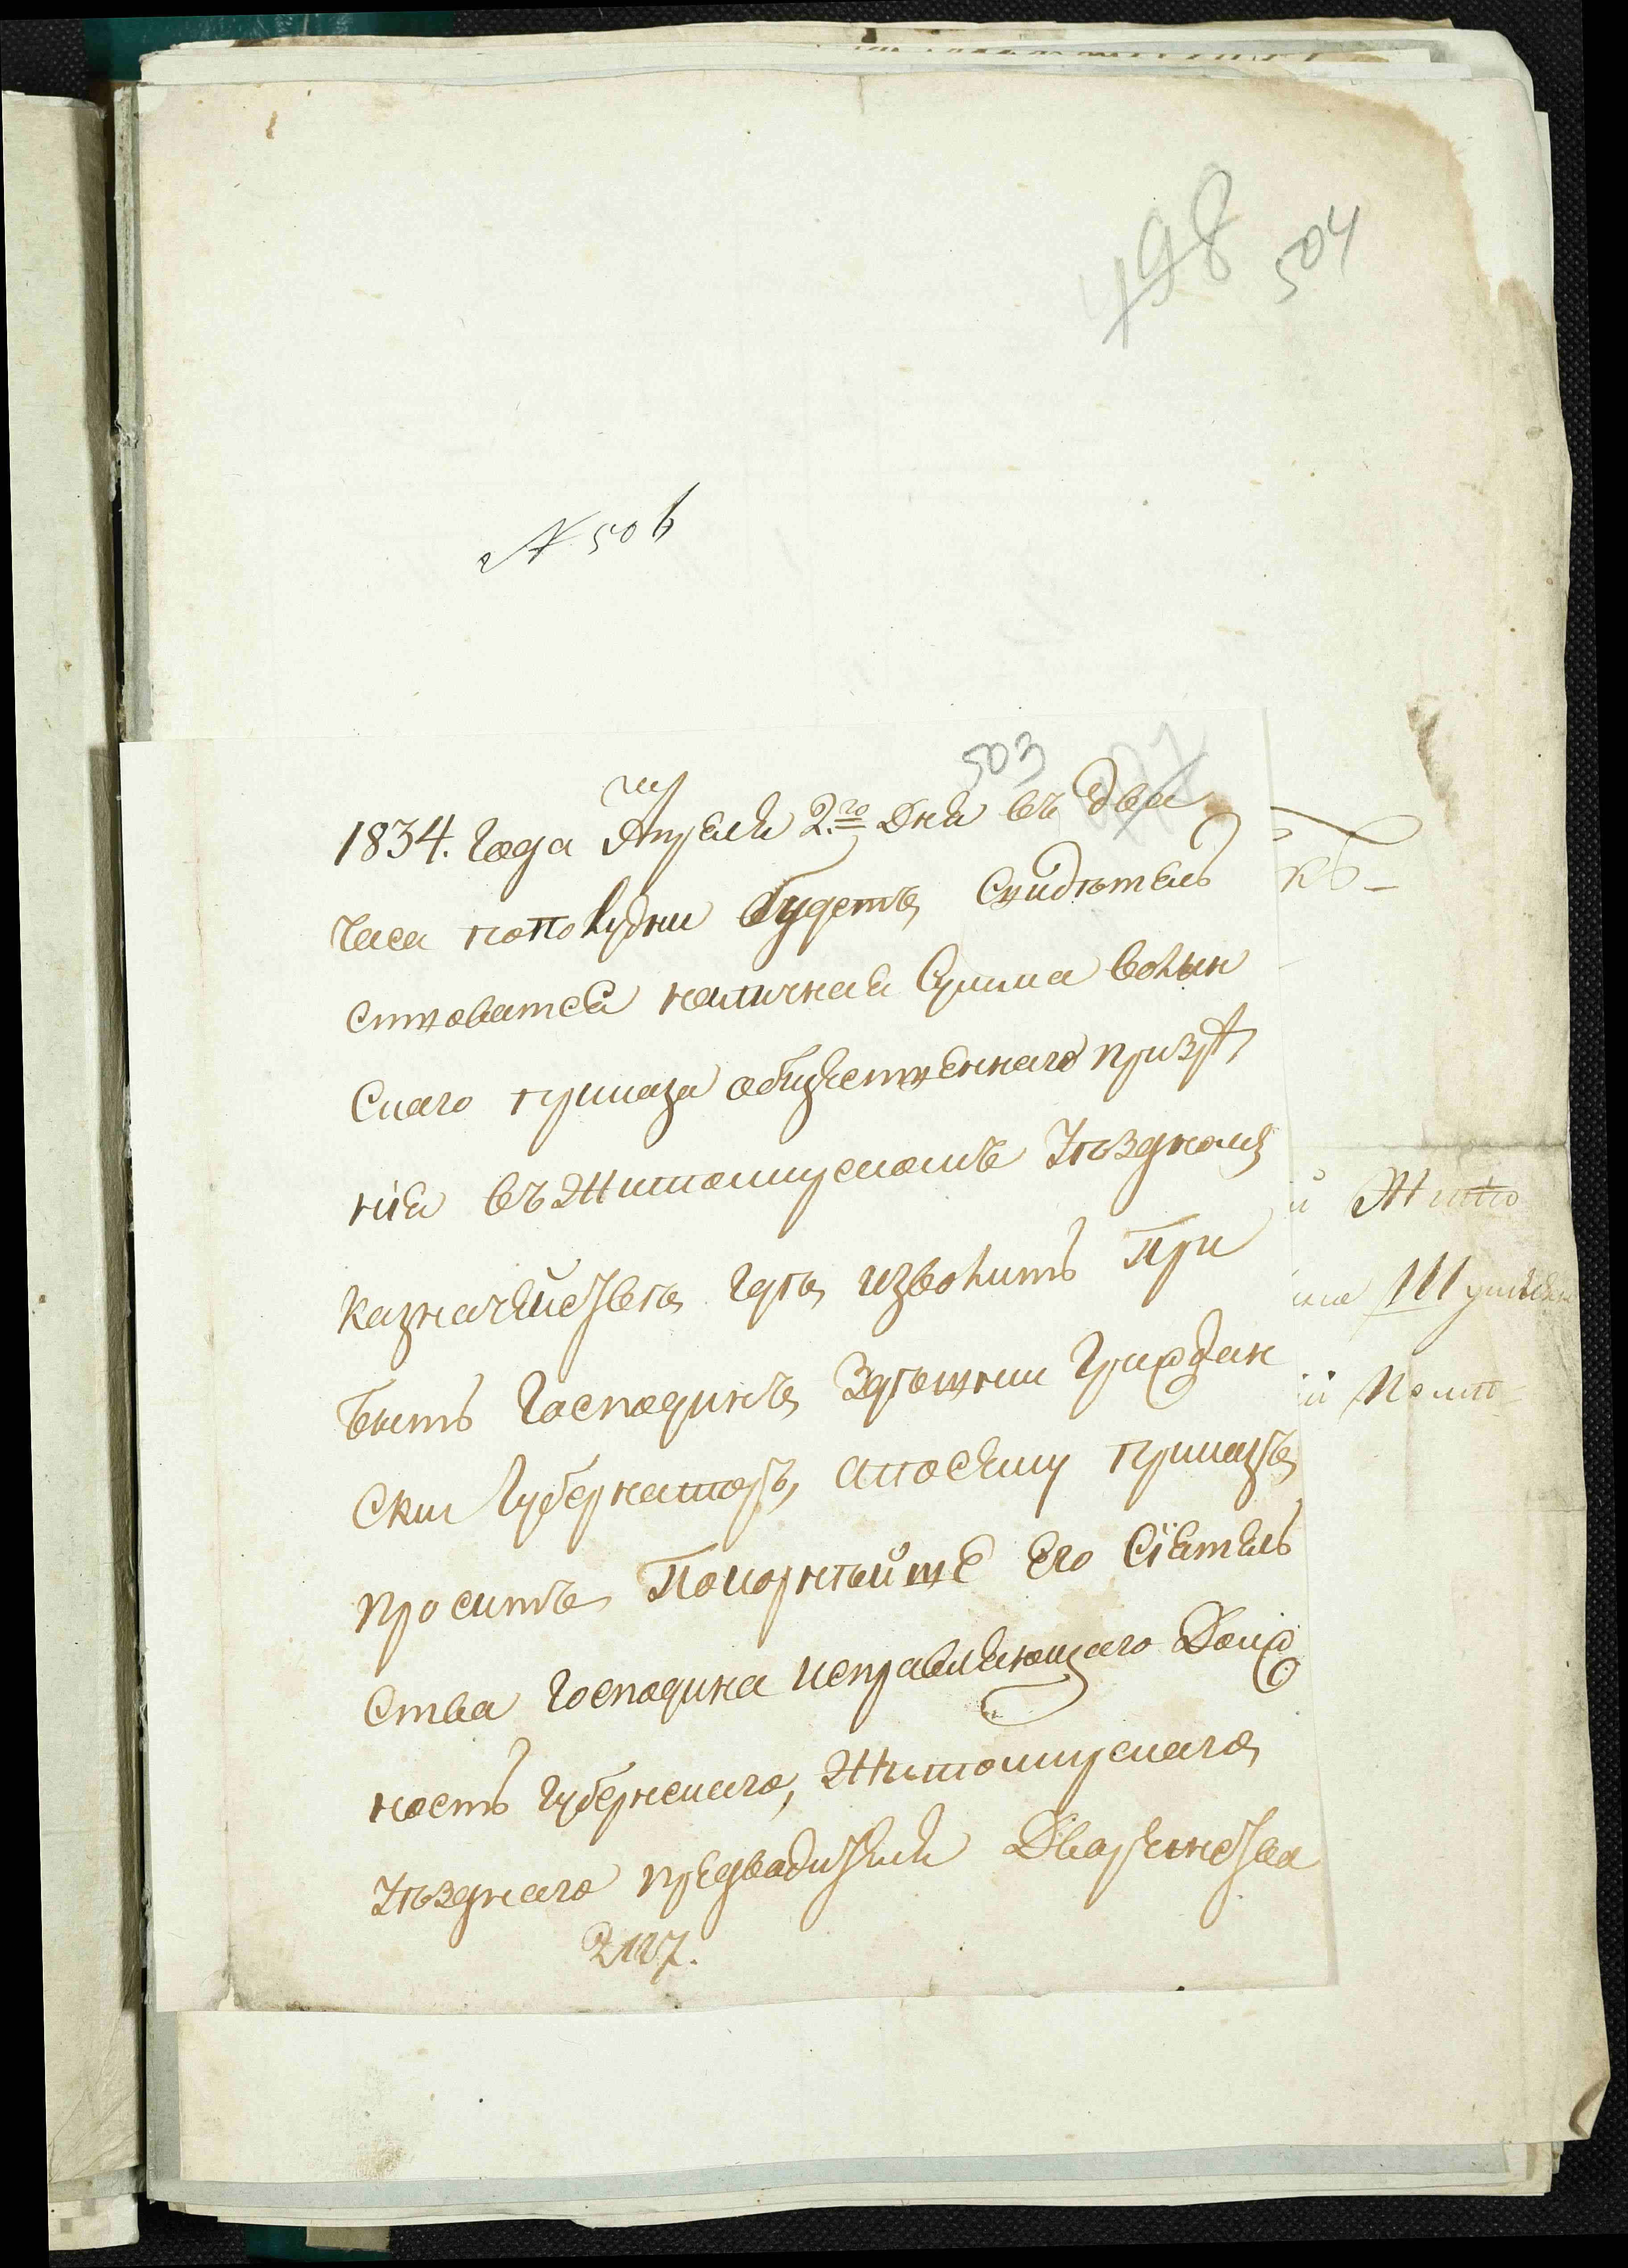 498 504
N 506
503
1834. Года Апреля 2.го Дня въ два
часа пополудни будетъ Свидѣтель
ствоватся наличная Сумма волын
скаго приказа общественнаго призрѣ
нія въ Житомирскомъ Уѣздномъ
казначействѣ гдѣ изволитъ При
быть Господинъ Здѣшнии Граждан
скии Губернаторъ, апосему приказъ
проситъ Покорнѣйше Его Сіятель
ства Господина исправляющаго Долж
ность Губернскаго, Житомирскаго
Уѣзднаго предводителя Дворянства
2127.
къ
й Жито
й Поли